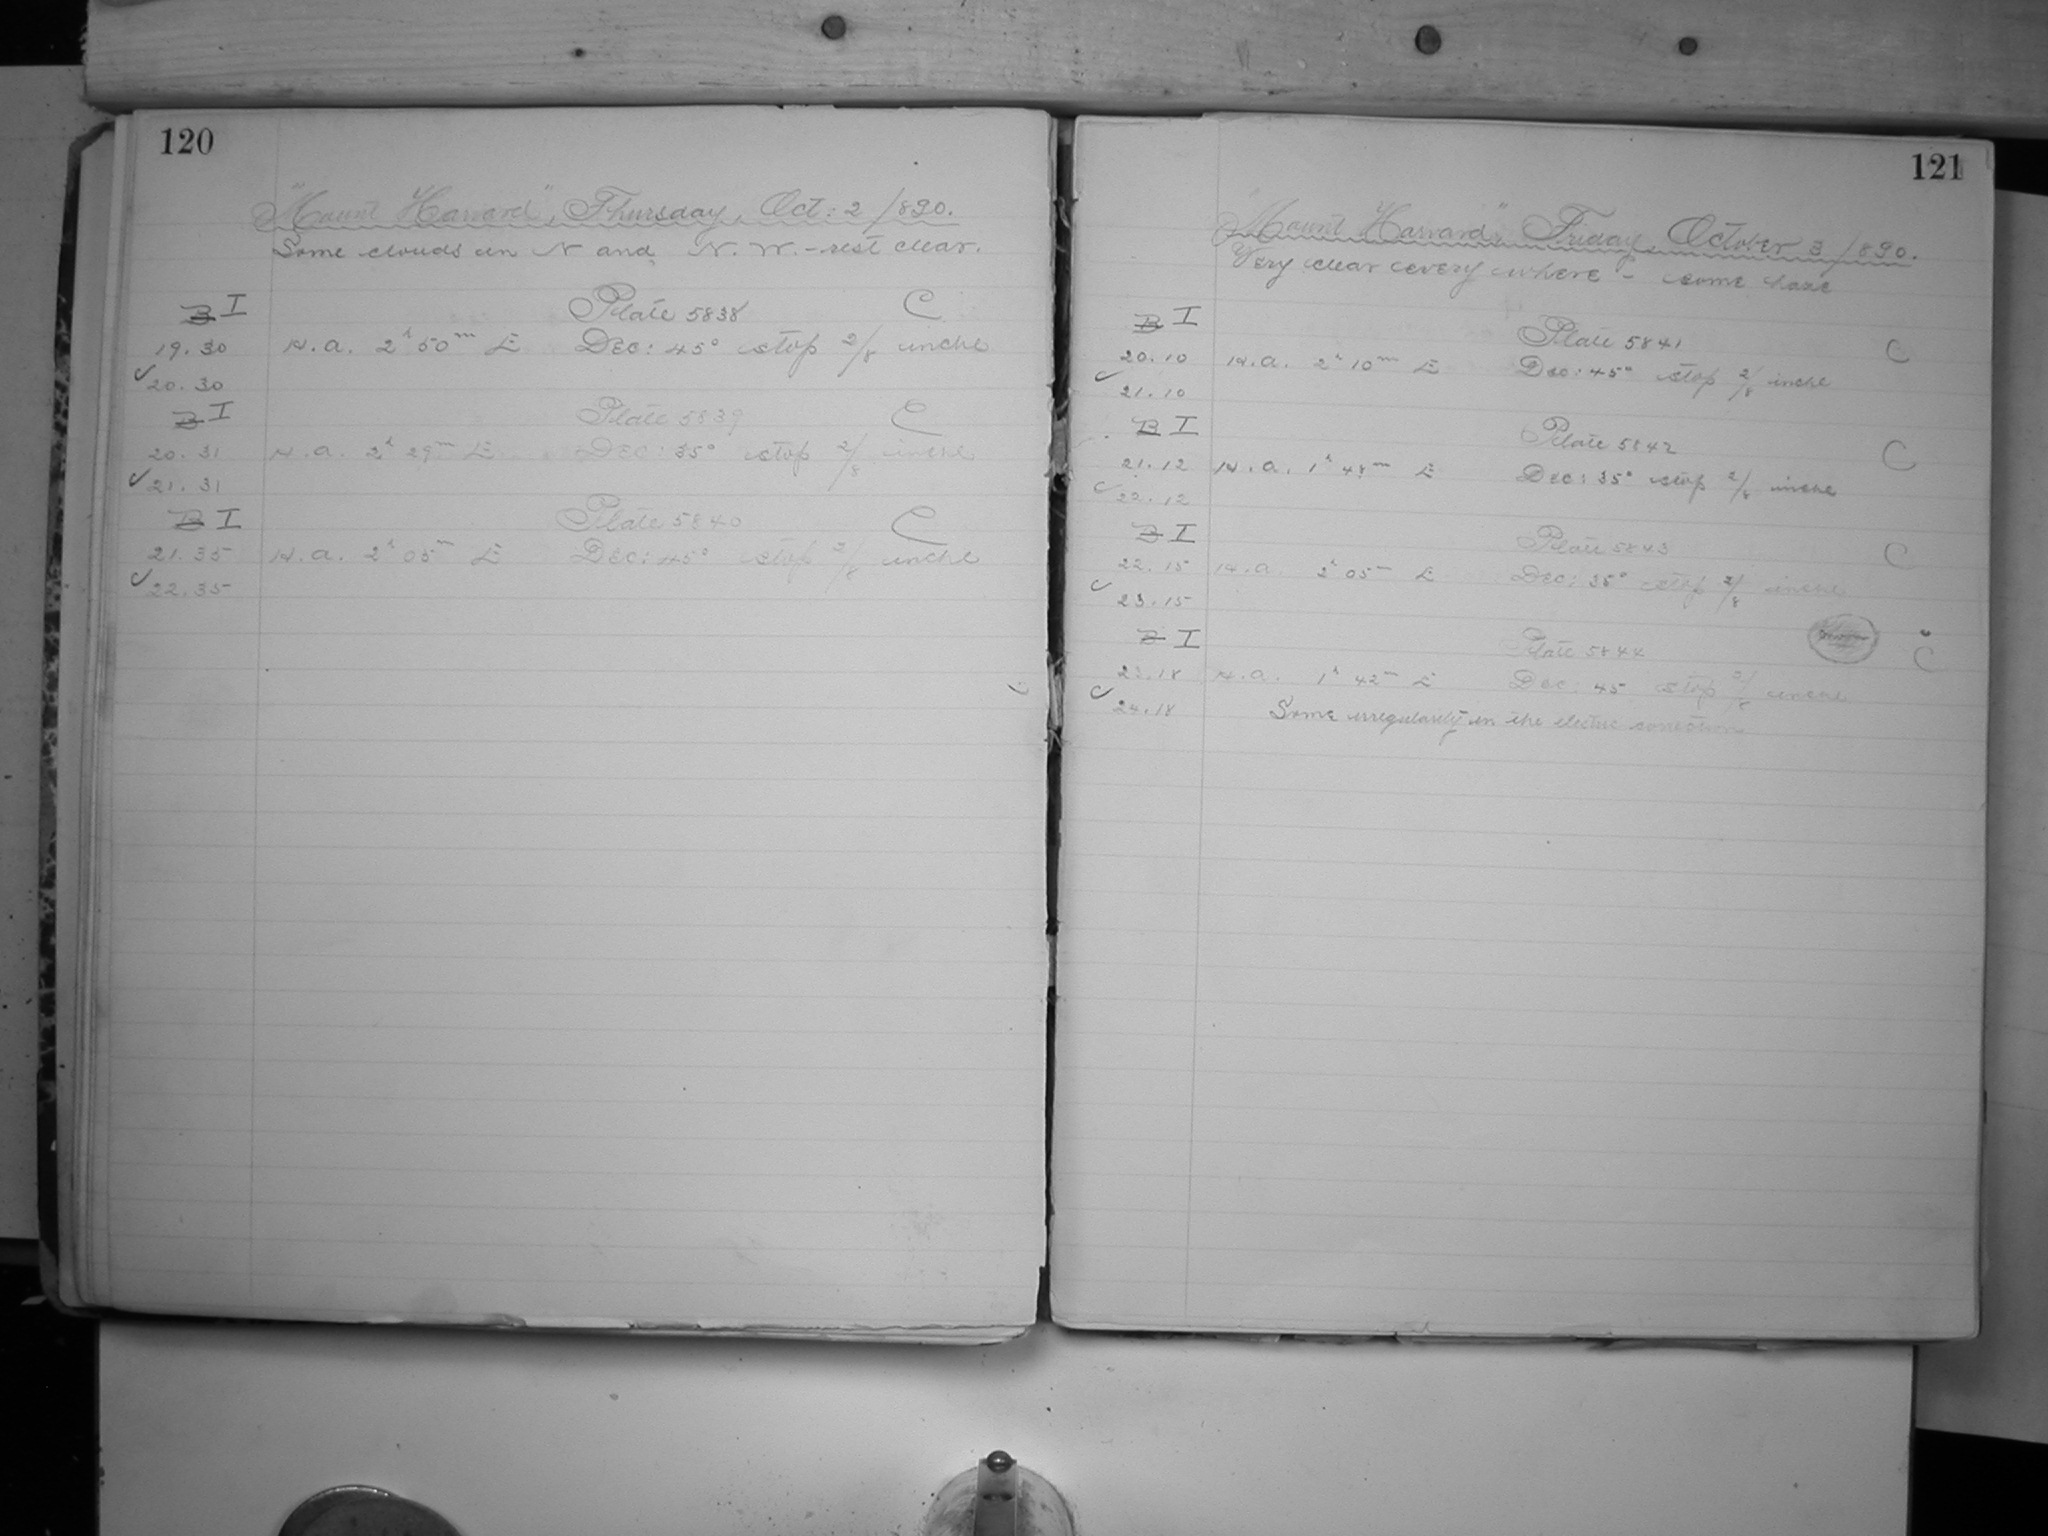 120
"Mount Harvard", Thursday, Oct: 2 /890.
Some clouds in N and N. W. - rest clear.
B I Plate 5838 C
19.30 H.a. 2h 50m E Dec: 45° stop 2/8 inche
✓20.30
B I Plate 5839 C
20.31 H.a. 2h 29m E Dec: 35° stop 2/8 inche
✓21.31
B I Plate 5840 C
21.35 H.a. 2h 05m E Dec: 45° stop 2/8 inche
✓22.35
121
"Mount Harvard", Friday, October 3 /890.
Very clear every where - some haze
B I Plate 5841 C
20.10 H.a. 2h 10m E Dec: 45° stop 2/8 inche
✓21.10
B I Plate 5842 C
21.12 H.a. 1h 48m E Dec: 35° stop 2/8 inche
✓22.12
B I Plate 5843 C
22.15 H.a. 2h 05m E Dec: 35° stop 2/8 inche
✓23.15
B I Plate 5844 C
23.18 H.a. 1h 42m E Dec: 45 stop 2/8 inche
✓24.18 Some irregularity in the electric